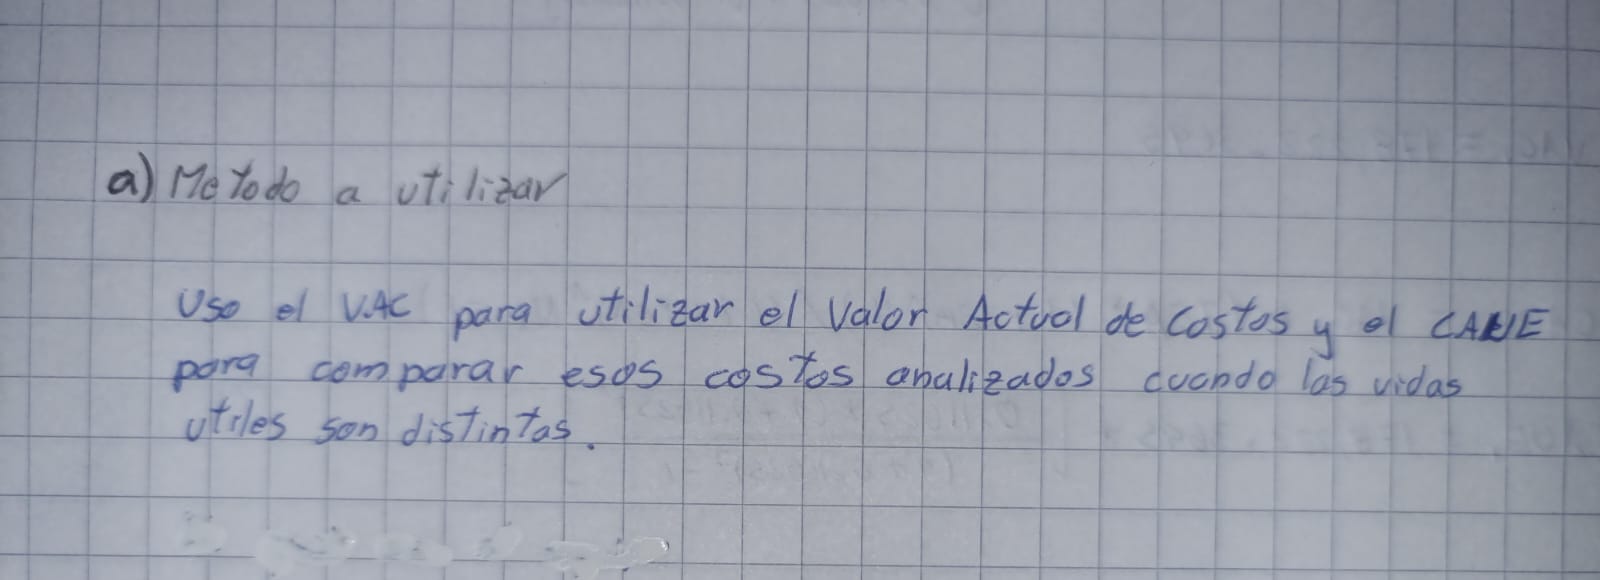 a) Metodo a utilizar
Uso el VAC para utilizar el Valor Actual de Costos y el CAUE
para comparar esos costos analizados cuando las vidas
utiles son distintas.